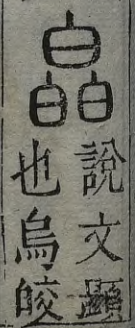 皛
說文顯
也烏皎